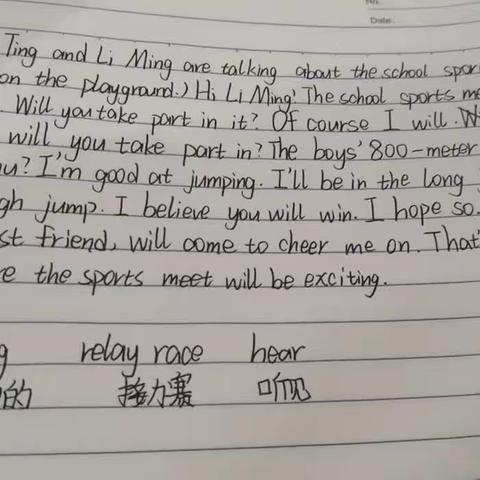 No.
Date.
Ting and Li Ming are talking about the school spor
on the playground.) Hi Li Ming! The school sports me
. Will you take part in it? Of course I will. W
will you take part in? The boys' 800-meter
ou? I'm good at jumping. I'll be in the long
gh jump. I believe you will win. I hope so.
st friend, will come to cheer me on. That
e the sports meet will be exciting.
g relay race hear
的 接力赛 听见